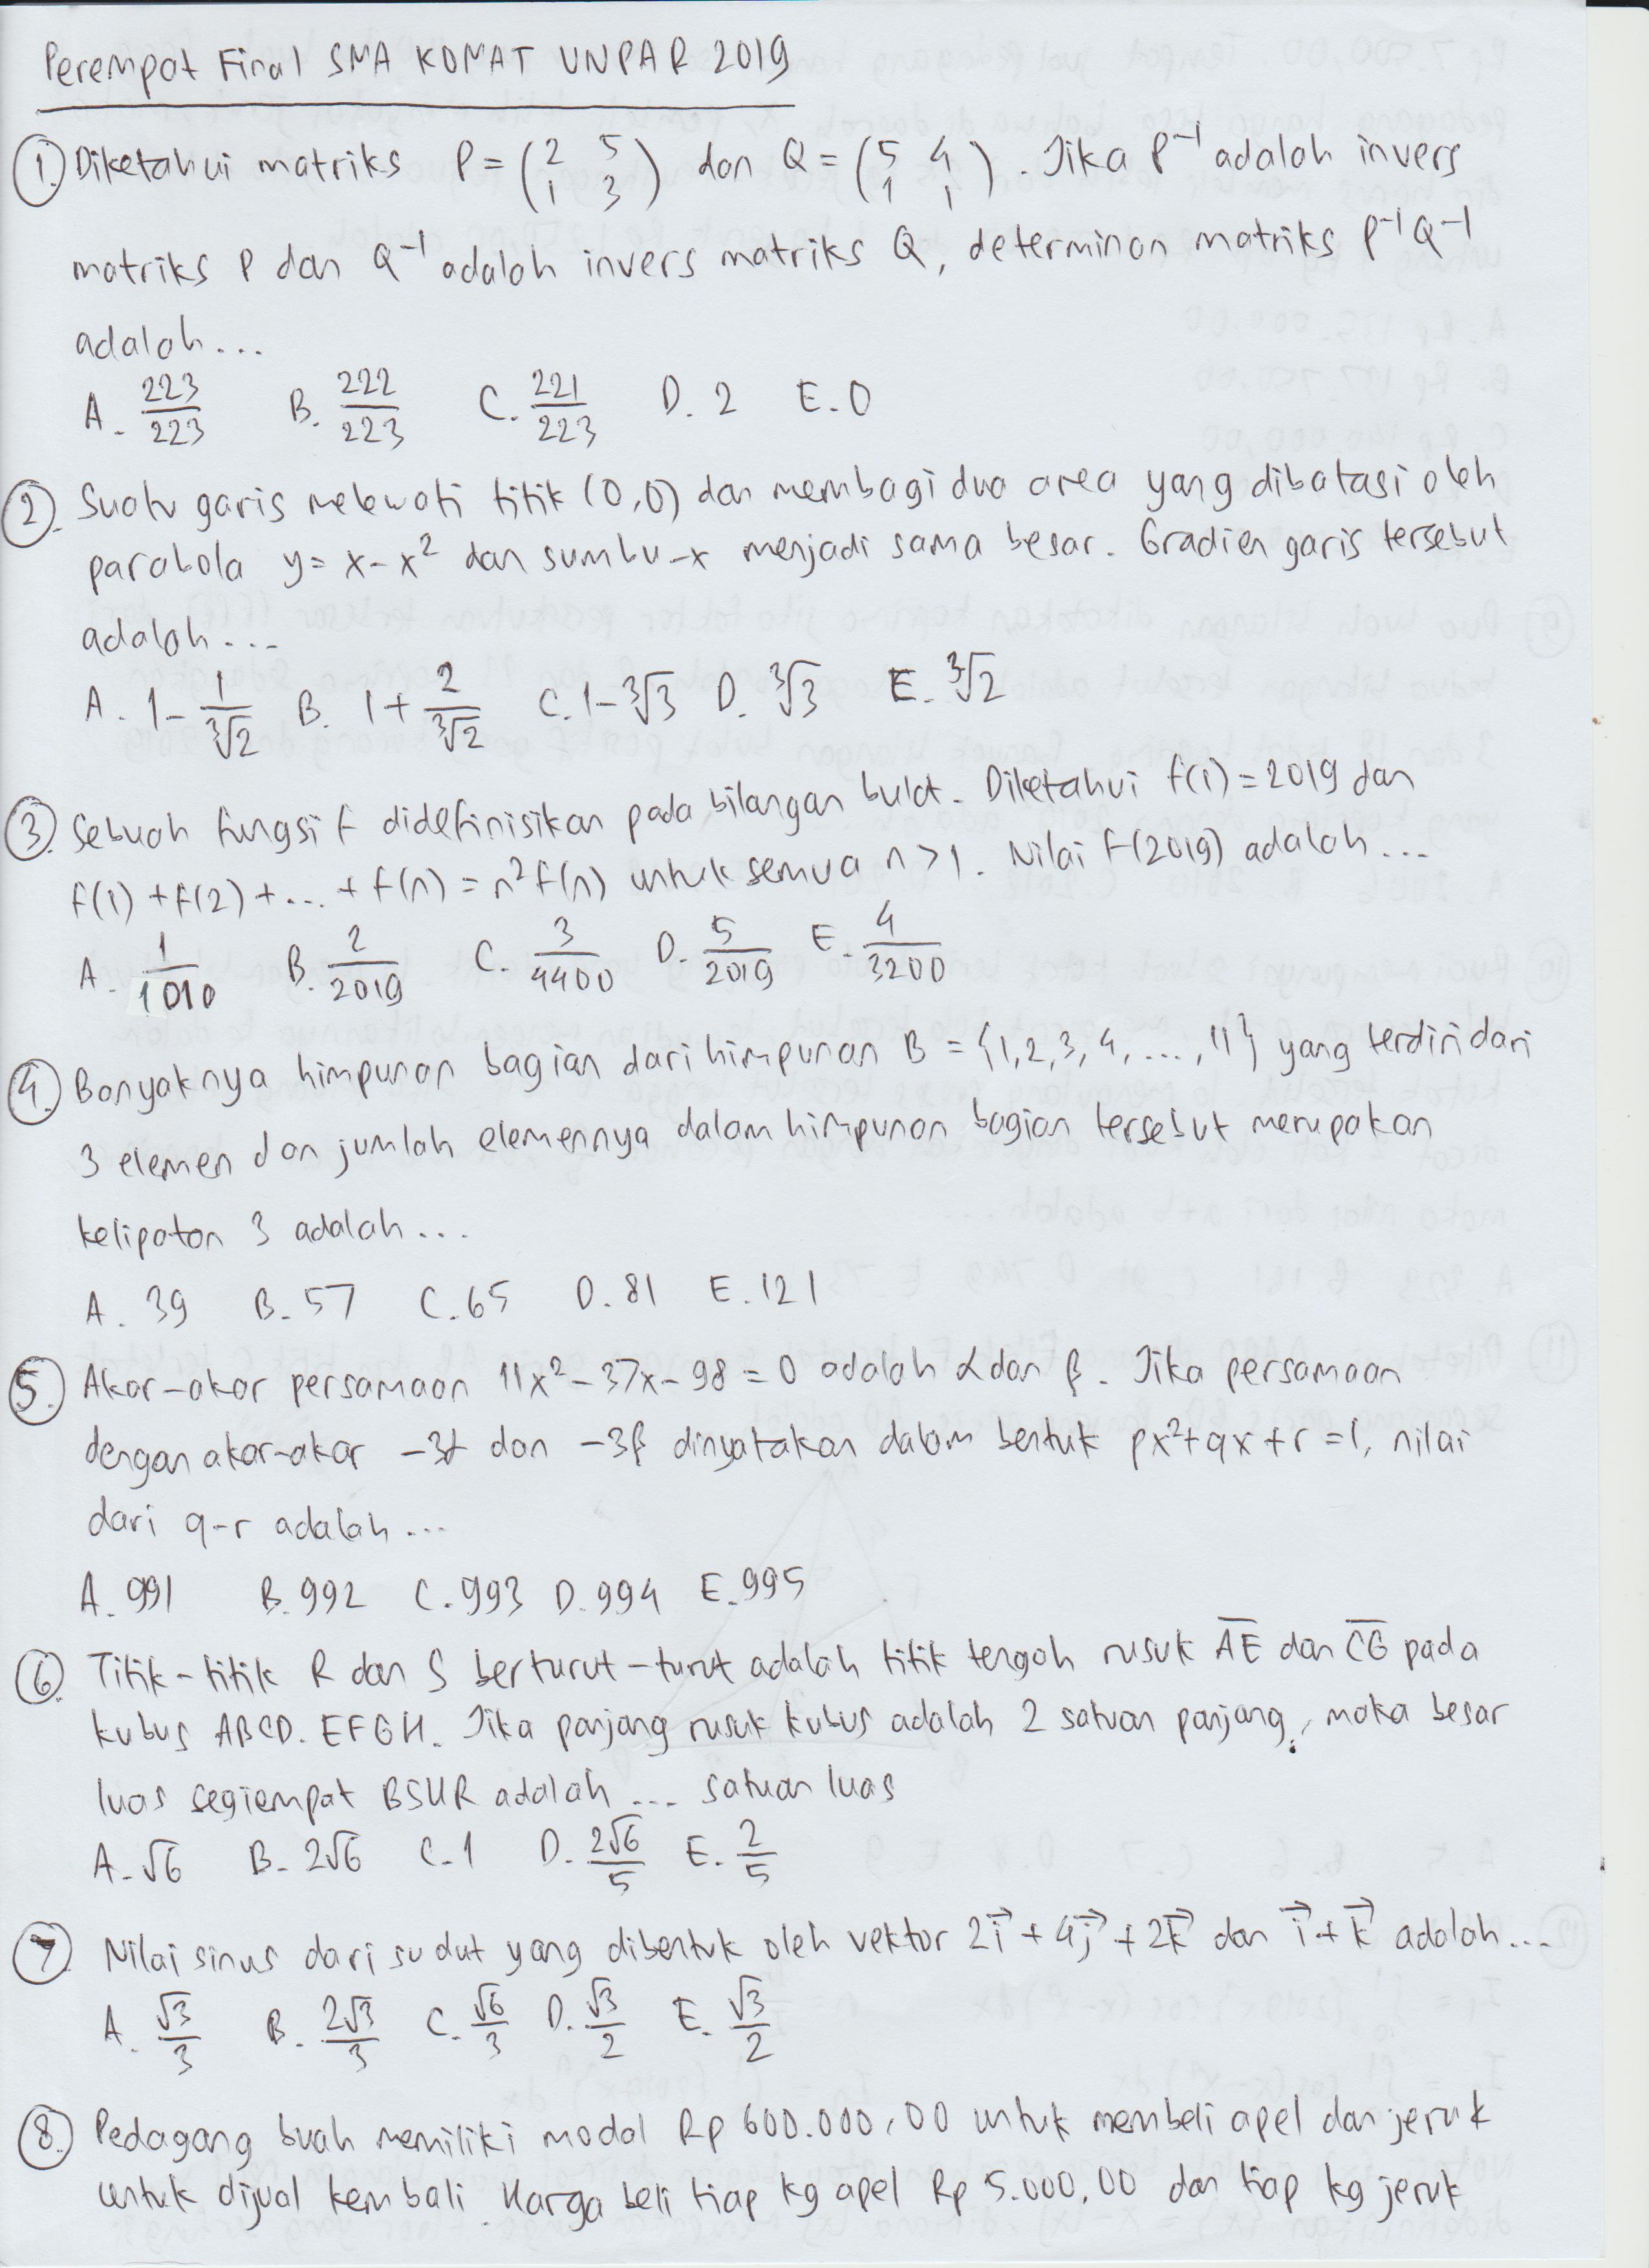 Perempat Final SMA KOMAT UNPAR 2019
1. Diketahui matriks P = (2 5 / 1 3) dan Q = (5 4 / 1 1). Jika P⁻¹ adalah invers
matriks P dan Q⁻¹ adalah invers matriks Q, determinan matriks P⁻¹Q⁻¹
adalah...
A. 223/223 B. 222/223 C. 221/223 D. 2 E. 0
2. Suatu garis melewati titik (0,0) dan membagi dua area yang dibatasi oleh
parabola y = x - x² dan sumbu-x menjadi sama besar. Gradien garis tersebut
adalah...
A. 1 - 1/∛2 B. 1 + 2/∛2 C. 1 - ∛3 D. ∛3 E. ∛2
3. Sebuah fungsi f didefinisikan pada bilangan bulat. Diketahui f(1) = 2019 dan
f(1) + f(2) + ... + f(n) = n² f(n) untuk semua n > 1. Nilai f(2019) adalah...
A. 1/1010 B. 2/2019 C. 3/4400 D. 5/2019 E. 4/3200
4. Banyaknya himpunan bagian dari himpunan B = {1, 2, 3, 4, ..., 11} yang terdiri dari
3 elemen dan jumlah elemennya dalam himpunan bagian tersebut merupakan
kelipatan 3 adalah...
A. 39 B. 57 C. 65 D. 81 E. 121
5. Akar-akar persamaan 11x² - 37x - 98 = 0 adalah α dan β. Jika persamaan
dengan akar-akar -3α dan -3β dinyatakan dalam bentuk px² + qx + r = 1, nilai
dari q-r adalah...
A. 991 B. 992 C. 993 D. 994 E. 995
6. Titik-titik R dan S berturut-turut adalah titik tengah rusuk A̅E̅ dan C̅G̅ pada
kubus ABCD.EFGH. Jika panjang rusuk kubus adalah 2 satuan panjang, maka besar
luas segiempat BSHR adalah ... satuan luas
A. √6 B. 2√6 C. 1 D. 2√6/5 E. 2/5
7. Nilai sinus dari sudut yang dibentuk oleh vektor 2i⃗ + 4j⃗ + 2k⃗ dan i⃗ + k⃗ adalah...
A. √3/3 B. 2√3/3 C. √6/3 D. √3/2 E. √3/2
8. Pedagang buah memiliki modal Rp 600.000,00 untuk membeli apel dan jeruk
untuk dijual kembali. Harga beli tiap kg apel Rp 5.000,00 dan tiap kg jeruk